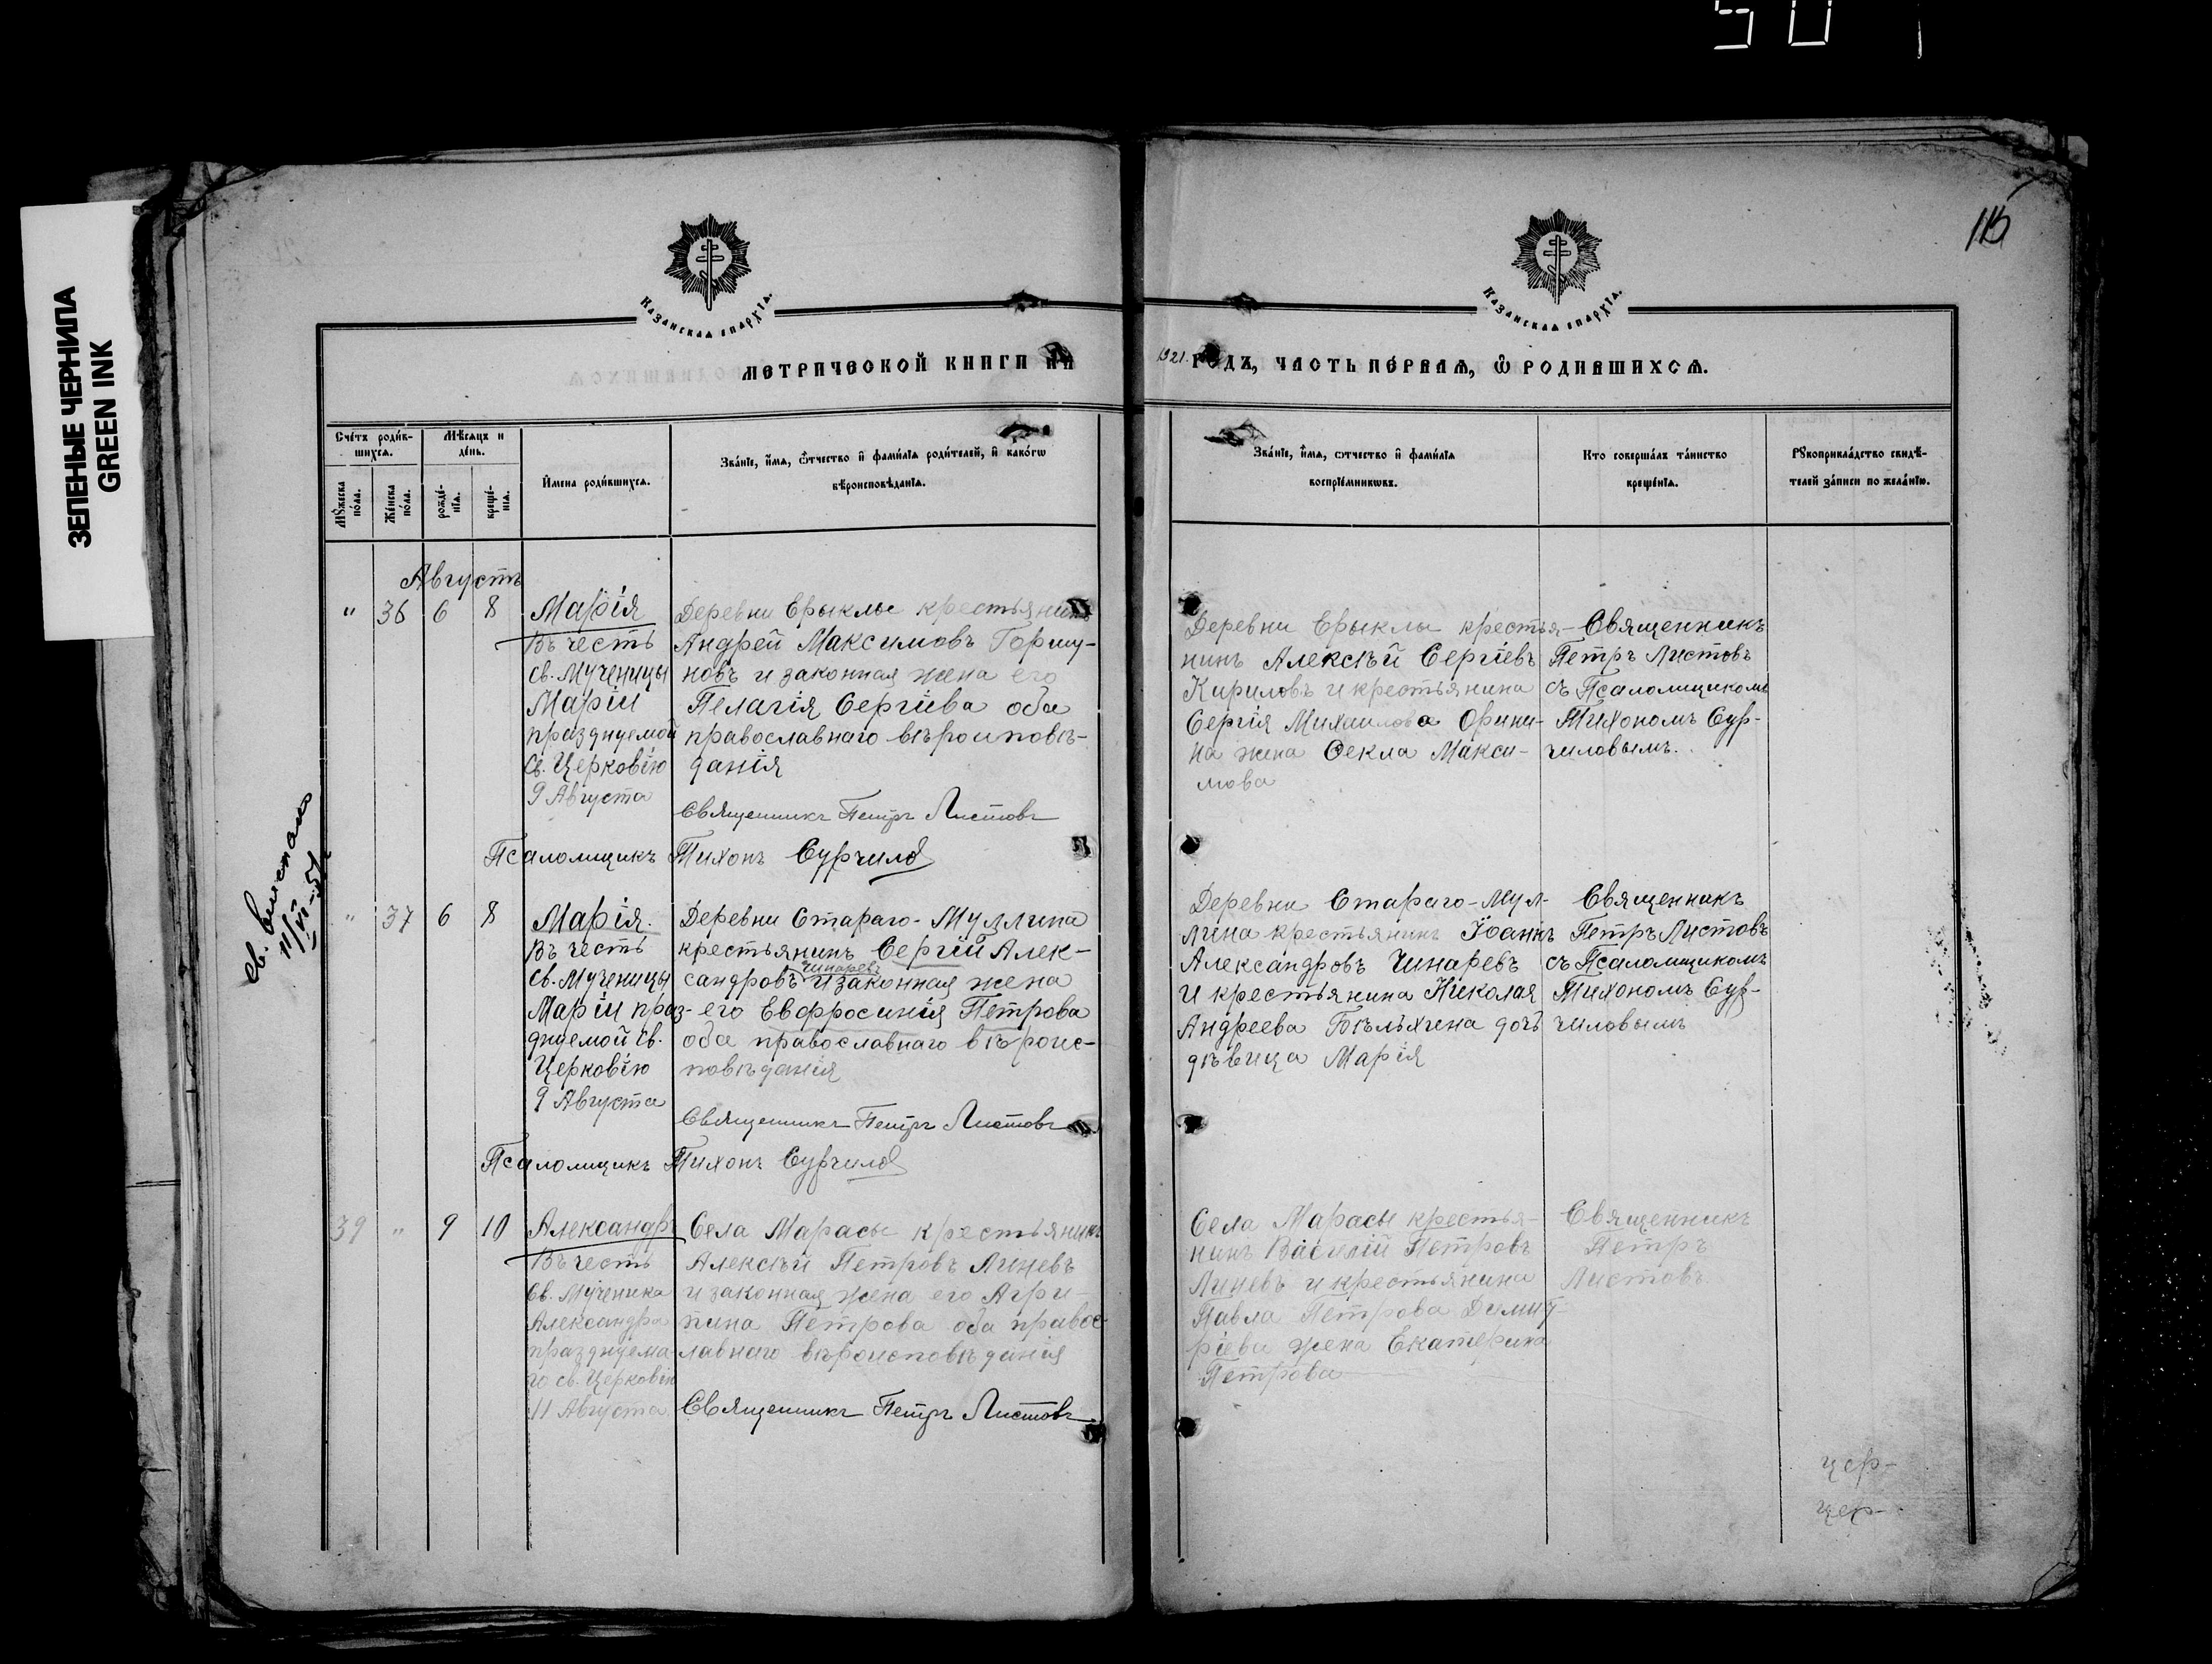 50
ЗЕЛЕНЫЕ ЧЕРНИЛА
GREEN INK
115
Казанская епархїа.
Казанская епархїа.
МЕТРИЧЕСКОЙ КНИГИ НА
1921. ГОДЪ, ЧАСТЬ ПЕРВАЯ, Ѡ РОДИВШИХСЯ.
Сче́тъ роди́в-
шихся.
Мꙋ́жеска по́ла.
Же́нска по́ла.
Мѣ́сяцъ и
де́нь.
рожде́-
нїя.
креще́-
нїя.
И҆мена роди́вшихся.
Зва́нїе, и҆́мя, ѻ҆́тчество и҆ фами́лїя роди́телей, и҆ како́гѡ
вѣроисповѣ́данїя.
Зва́нїе, и҆́мя, ѻ҆́тчество и҆ фами́лїя
воспрїе́мникѡвъ.
Кто соверша́лъ та́инство
креще́нїя.
Рꙋкоприкла́дство свидѣ́-
телей за́писи по жела́нїю.
Августъ
" 36 6 8
Марія
Въ честь
св. Мученицы
Маріи
празднуемой
св. Церковію
9 Августа
Деревни Ерыклы крестьянинъ
Андрей Максимовъ Горшу-
новъ и законная жена его
Пелагія Сергіева оба
православнаго вѣроиповѣ-
данія
Священникъ Петръ Листовъ
Псаломщикъ Тихонъ Сурчилов
Деревни Ерыклы крестья-
нинъ Алексѣй Сергіевъ
Кириловъ и крестьянина
Сергія Михаилова Орини-
на жена Ѳекла Макси-
мова
Священникъ
Петръ Листовъ
съ Псаломщикомъ
Тихономъ Сур-
чиловымъ.
св. выслано
" 37 6 8
Марія.
Въ честь
св. Мученицы
Маріи праз-
днуемой св.
Церковію
9 Августа
Деревни Стараго-Муллина
крестьянинъ Сергій Алек-
Чинаревъ
сандровъ и законная жена
его Евфросинія Петрова
оба православнаго вѣроис-
повѣданія
Священникъ Петръ Листовъ
Псаломщикъ Тихонъ Сурчилов
Деревни Стараго-Мул-
лина крестьянинъ Іоаннъ
Александровъ Чинаревъ
и крестьянина Николая
Андреева дочь
дѣвица Марія
Священникъ
Петръ Листовъ
съ Псаломщикомъ
Тихономъ Сур-
чиловымъ
39 " 9 10
Александръ
Въ честь
св. Мученика
Александра
празднуема-
го св. Церковію
11 Августа
Села Марасы крестьянинъ
Алексѣй Петровъ Линевъ
и законная жена его Агри-
пина Петрова оба правос-
лавнаго вѣроисповѣданія
Священникъ Петръ Листовъ
Села Марасы крестья-
нинъ Василій Петровъ
Линевъ и крестьянина
Павла Петрова Димит-
ріева жена Екатерина
Петрова
Священникъ
Петръ
Листовъ
цер-
цер-